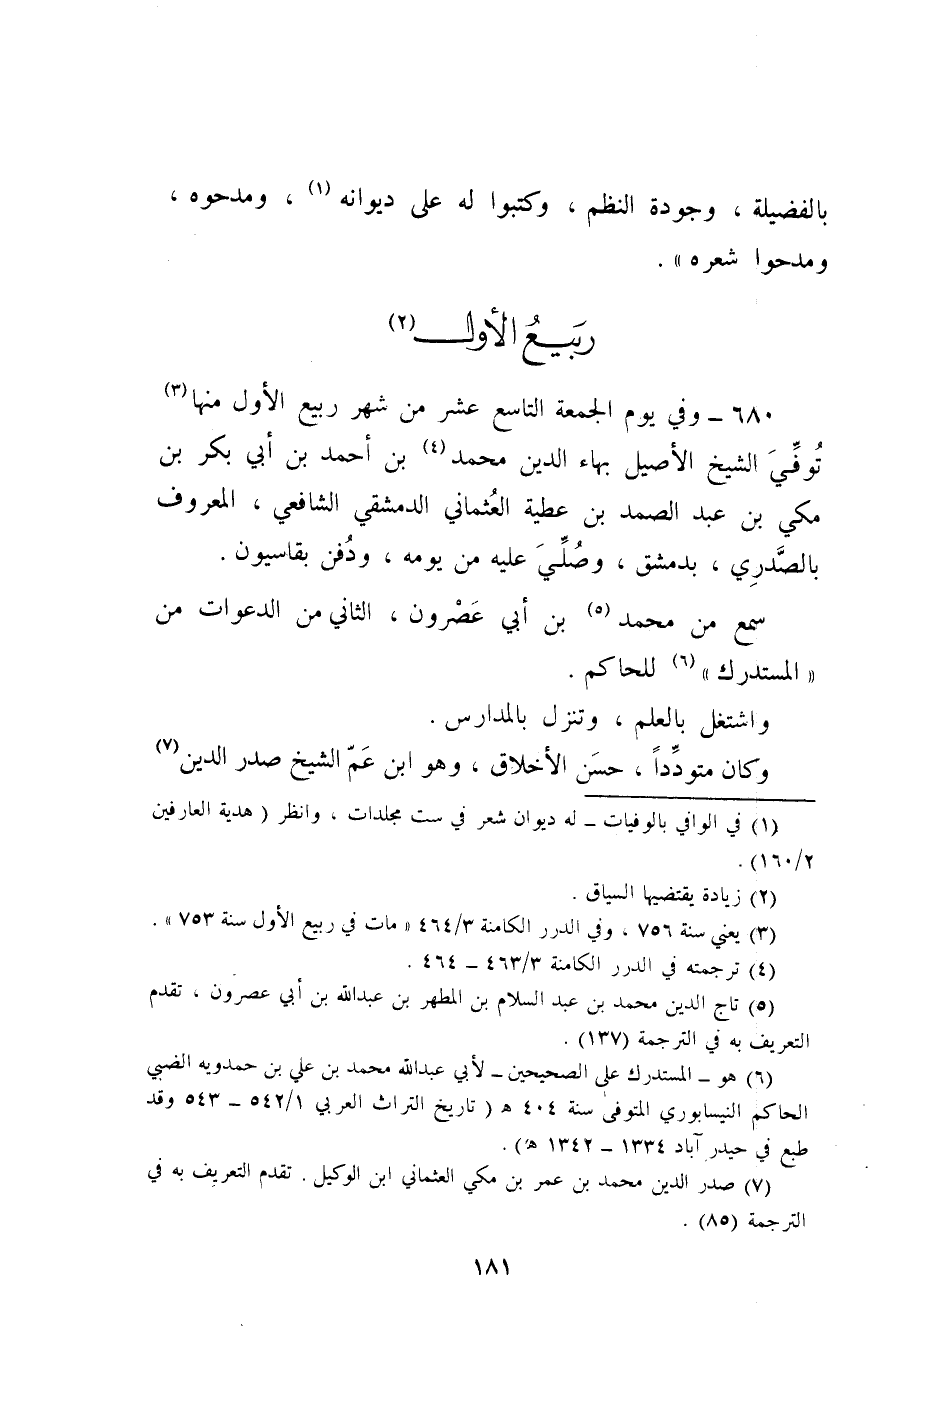 بالفضيلة ، وجودة النظم ، وكتبوا له على ديوانه (١) ، ومدحوه ،
ومدحوا شعره » .
رَبيعُ الأول (٢)
٦٨٠ ـ وفي يوم الجمعة التاسع عشر من شهر ربيع الأول منها (٣)
تُوفِّيَ الشيخ الأصيل بهاء الدين محمد (٤) بن أحمد بن أبي بكر بن
مكي بن عبد الصمد بن عطية العُثماني الدمشقي الشافعي ، المعروف
بالصَّدرِي ، بدمشق ، وصُلِّيَ عليه من يومه ، ودُفن بقاسيون .
سمع من محمد (٥) بن أبي عَصْرون ، الثاني من الدعوات من
« المستدرك » (٦) للحاكم .
واشتغل بالعلم ، وتنزل بالمدارس .
وكان متودِّداً ، حسَن الأخلاق ، وهو ابن عَمّ الشيخ صدر الدين (٧)
(١) في الوافي بالوفيات ـ له ديوان شعر في ست مجلدات ، وانظر ( هدية العارفين
٢/ ١٦٠) .
(٢) زيادة يقتضيها السياق .
(٣) يعني سنة ٧٥٦ ، وفي الدرر الكامنة ٣/ ٤٦٤ « مات في ربيع الأول سنة ٧٥٣ » .
(٤) ترجمته في الدرر الكامنة ٣/ ٤٦٣ ـ ٤٦٤ .
(٥) تاج الدين محمد بن عبد السلام بن المطهر بن عبدالله بن أبي عصرون ، تقدم
التعريف به في الترجمة (١٣٧) .
(٦) هو ـ المستدرك على الصحيحين ـ لأبي عبدالله محمد بن علي بن حمدويه الضبي
الحاكم النيسابوري المتوفى سنة ٤٠٤ هـ ( تاريخ التراث العربي ١/ ٥٤٢ ـ ٥٤٣ وقد
طبع في حيدر آباد ١٣٣٤ ـ ١٣٤٢ هـ) .
(٧) صدر الدين محمد بن عمر بن مكي العثماني ابن الوكيل . تقدم التعريف به في
الترجمة (٨٥) .
١٨١